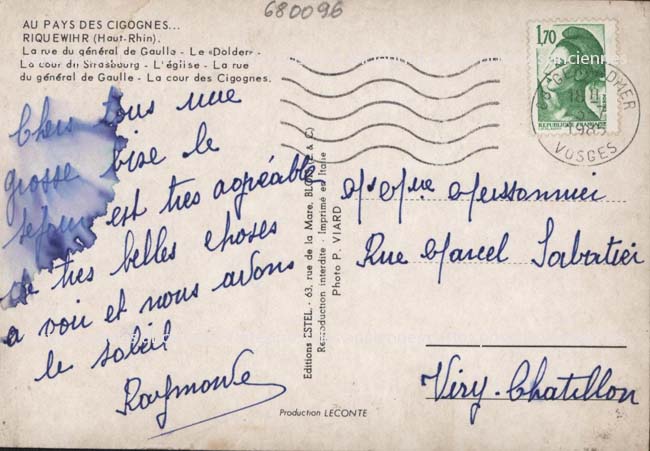 680096
AU PAYS DES CIGOGNES...
RIQUEWIHR (Haut-Rhin).
La rue du général de Gaulle - Le «Dolder» -
La cour du Strasbourg - L'église - La rue
du général de Gaulle - La cour des Cigognes.
Chers tous une
grosse bise le
sejour est tres agréable
de tres belles choses
a voir et nous avons
le soleil
Raymonde
Editions ESTEL - 63, rue de la Mare,
Reproduction interdite - Imprimé en Italie
Photo P. VIARD
Production LECONTE
1,70
REPUBLIQUE FRANÇAISE
18 H
1985
VOSGES
Rue Marcel Sabatier
Viry-Chatillon